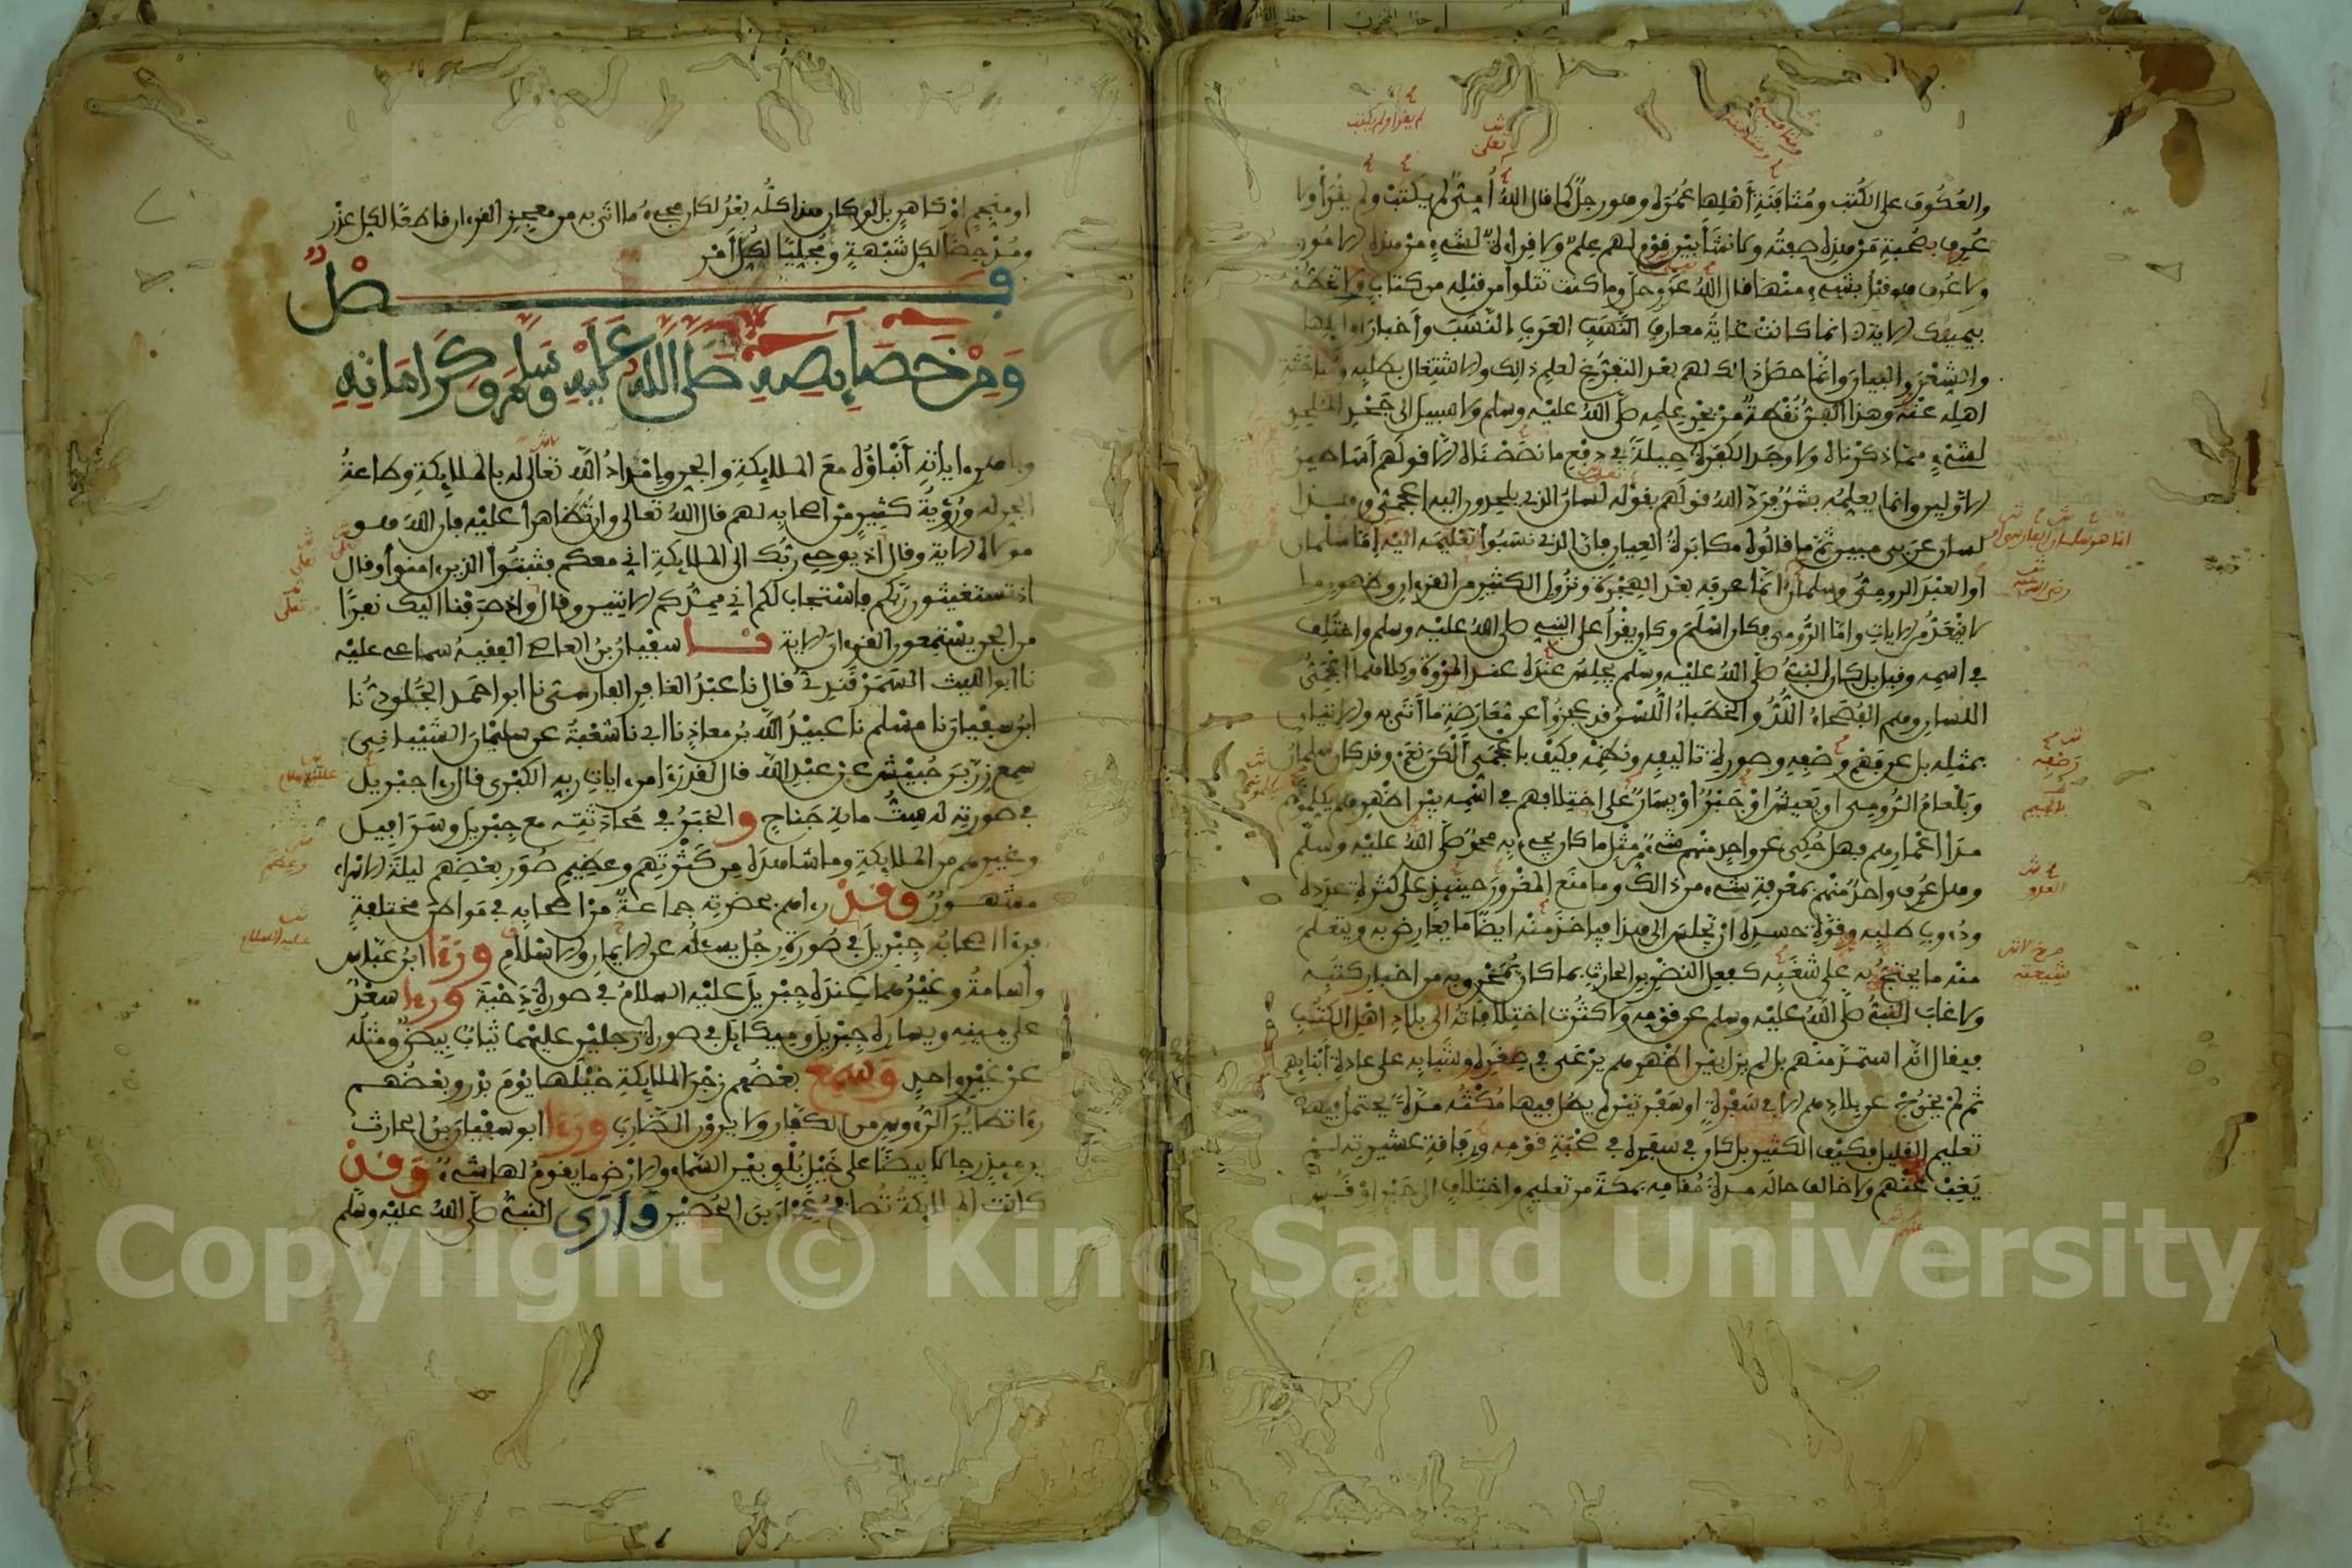 والعكوف على الكتب ومثافنة أهلها عمره وهو رجل كما قال الله أمي لم يكتب ولم يقرأ ولا
عرف بصحبة من هذه صفته ولا نشأ بين قوم لهم علم ولا قراءة لشيء من هذه الامور
ولا عرف هو قبل بشيء منها قال الله عز وجل وما كنت تتلوا من قبله من كتاب ولا تخطه
بيمينك الاية انما كانت غاية معارف العرب النسب وأخبار اوايلها
والشعر والبيان وانما حصل ذالك لهم بعد التفرغ لعلم ذالك والاشتغال بطلبه ومباحثة
اهله عنه وهذا الفن نقطة من بحر علمه صلى الله عليه وسلم ولا سبيل الى جحد الملحد
لشيء مما ذكرناه ولا وجد الكفرة حيلة في دفع ما نصصناه الا قولهم أساطير
الاولين وانما يعلمه بشر فرد الله قولهم بقوله لسان الذي يلحدون اليه اعجمي وهذا
لسان عربي مبين ثم ما قالوه مكابرة العيان فان الذي نسبوا تعليمه اليه إما سلمان
أو العبد الرومي وسلمان انما عرفه بعد الهجرة ونزول الكثير من القرءان وظهور ما
لا ينعد من الايات واما الرومي فكان اسلم وكان يقرأ على النبي صلى الله عليه وسلم واختلف
في اسمه وقيل بل كان النبي صلى الله عليه وسلم يجلس عنده عند المروة وكلاهما اعجمي
اللسان وهم الفصحاء اللد والخطباء اللسن قد عجزوا عن معارضة ما أتى به والاتيان
بمثله بل عن فهم وصفه وصورة تاليفه ونظمه فكيف باعجمي ألكن نعم وقد كان سلمان
وبلعام الرومي او يعيش او جبر أو يسار على اختلافهم في اسمه بين اظهرهم يكلمونهم
مدا اعمارهم فهل حكي عن واحد منهم شيء من مثل ما كان يجيء به محمد صلى الله عليه وسلم
وهل عرف واحد منهم بمعرفة شيء من ذالك وما منع العدو حينيذ على كثرة عدده
ودءوب طلبه وقوة حسده ان يجلس الى هذا فياخذ منه ايضا ما يعارض به ويتعلم
منه ما يحتج به على شغبه كفعل النضر بن الحارث بما كان يمخرق به من اخبار كتبه
ولا غاب النبي صلى الله عليه وسلم عن قومه ولا كثرت اختلافاته الى بلاد اهل الكتب
فيقال انه استمد منهم بل لم يزل بين اظهرهم يرعى في صغره وشبابه على عادة أنبيايهم
ثم لم يخرج عن بلادهم الا في سفرة او سفرتين لم يطل فيها مكثه مدة يحتمل فيها
تعليم القليل فكيف الكثير بل كان في سفره في صحبة قومه ورفاقة عشيرته لم
يغب عنهم ولا خالف حاله مدة مقامه بمكة من تعليم واختلاف الى حبر او قس
او منجم او كاهن بل لو كان هذا كله بعد لكان مجيء ما اتى به من معجز القرءان قاطعا لكل عذر
ومدحضا لكل شبهة ومجليا لكل أمر
فصل
ومن خصايصه صلى الله عليه وسلم وكراماته
وباهر ءاياته أنباؤه مع الملايكة والجن وإمداد الله تعالى له بالملايكة وطاعة
الجن له ورؤية كثير من اصحابه لهم قال الله تعالى وان تظاهرا عليه فان الله هو
مولاه الاية وقال اذ يوحي ربك الى الملايكة اني معكم فثبتوا الذين ءامنوا وقال
اذ تستغيثون ربكم فاستجاب لكم اني ممدكم الايتين وقال واذ صرفنا اليك نفرا
من الجن يستمعون القرءان الاية نا سفيان بن العاصي الفقيه سماعي عليه
نا ابو الليث السمرقندي قال نا عبد الغافر الفارسي نا ابو احمد الجلودي نا
ابن سفيان نا مسلم نا عبيد الله بن معاذ نا ابي نا شعبة عن سليمان الشيباني
سمع زر بن حبيش عن عبد الله قال لقد رءا من ءايات ربه الكبرى قال رءا جبريل
في صورته له ست ماية جناح والخبر في محادثته مع جبريل وسرافيل
وغيرهم من الملايكة وما شاهده من كثرتهم وعظيم صور بعضهم ليلة الاسراء
مشهور وقد رءاهم بحضرته جماعة من اصحابه في مواطن مختلفة
فرءا اصحابه جبريل في صورة رجل يسئله عن الايمان والاسلام ورءا ابن عباس
وأسامة وغيرهما عنده جبريل عليه السلام في صورة دحية ورءا سعد
على يمينه ويساره جبريل وميكايل في صورة رجلين عليهما ثياب بيض ومثله
عن غير واحد وسمع بعضهم زجر الملايكة خيلها يوم بدر وبعضهم
رءا تطاير الرءوس من الكفار ولا يرون الضارب ورءا ابو سفيان بن الحارث
يوميذ رجالا بيضا على خيل بلق بين السماء والارض ما يقوم لها شيء وقد
كانت الملايكة تصافح عمران بن الحصين وأرى النبي صلى الله عليه وسلم
Copyright © King Saud University